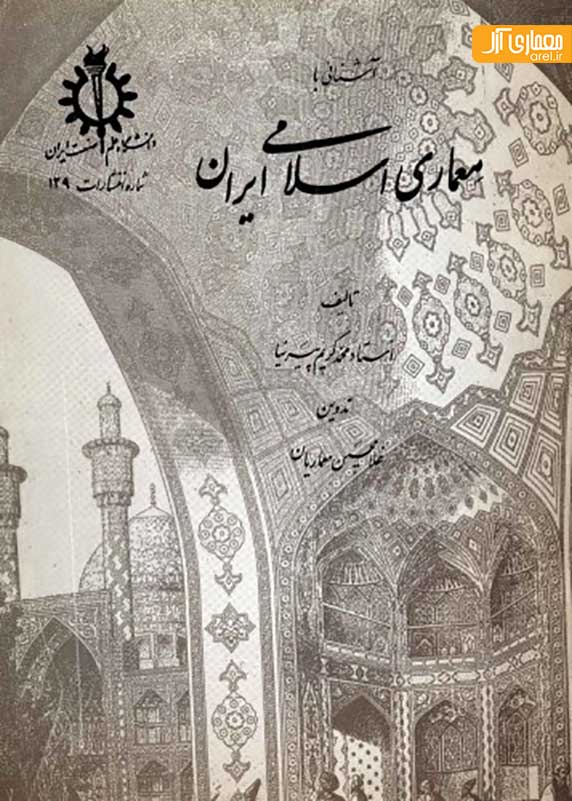 معماری آرل
arel.ir
آشنائی با
معماری اسلامی ایران
دانشگاه علم و صنعت ایران
شماره انتشارات ۱۲۹
تالیف
استاد محمد کریم پیرنیا
تدوین
غلامحسین معماریان